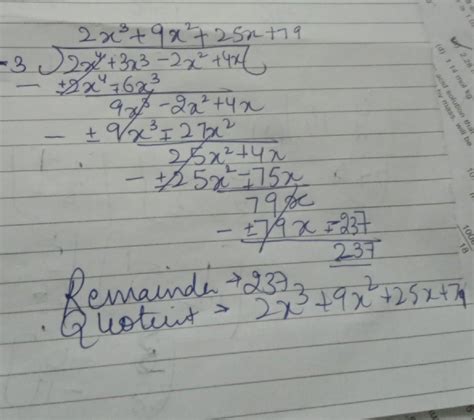 2x³+9x²+25x+79
-3 ) 2x⁴+3x³-2x²+4x
- ±2x⁴∓6x³
9x³-2x²+4x
- ±9x³∓27x²
25x²+4x
- ±25x²∓75x
79x
- ±79x∓237
237
Remainder → 237
Quotient → 2x³+9x²+25x+79